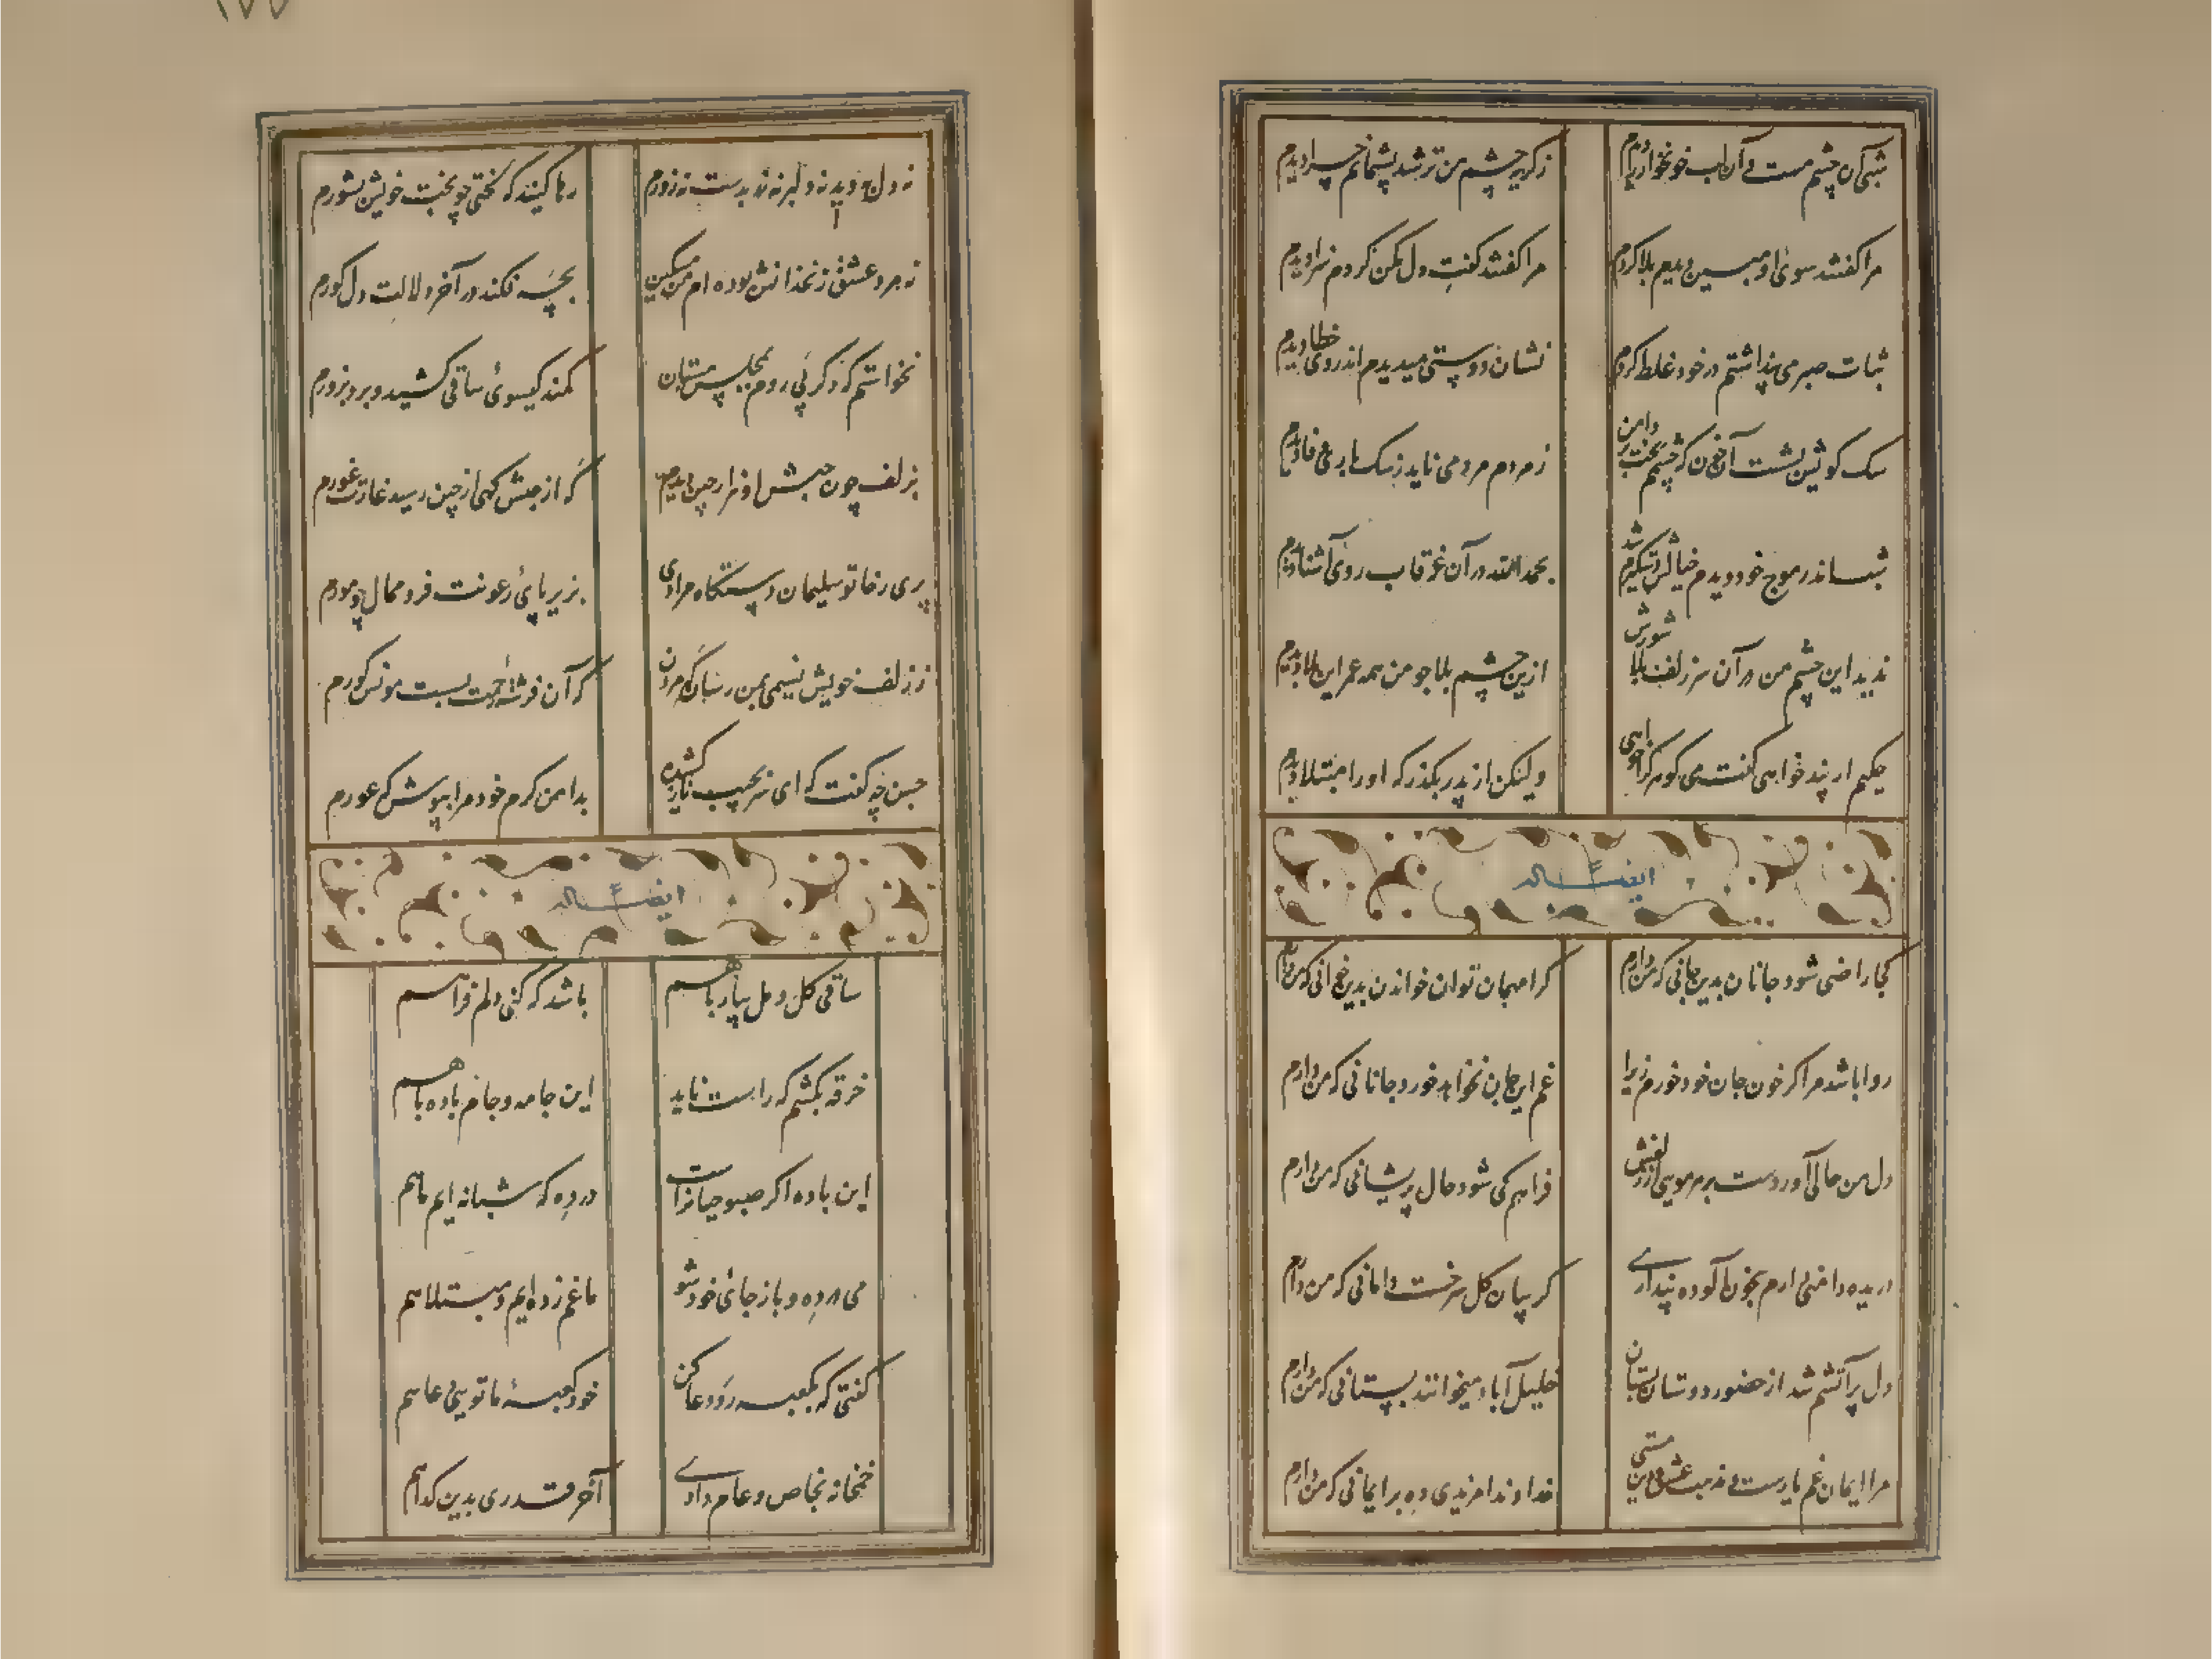 شبی آن چشم مست و آن لب خونخوار دیدم
ز گریه چشم من تر شد پشیمانم چرا دیدم
مرا گفتند سوی او مبین دیدم بلا کردم
مرا گفتند گفت دل مکن کردم سزا دیدم
ثبات صبر می پنداشتم در خود غلط کردم
نشان دوستی میدیدم اندر وی خطا دیدم
سک کویش نشست آن خون که چشمم ریخت بر دامن
ز مردم مردمی ناید ز سک باری وفا دیدم
شب اندر موج خود دیدم خیالش دستگیرم شد
بحمدالله در آن غرقاب روی آشنا دیدم
ندید این چشم من در آن سر زلف بلا شورش
ازین چشم بلا جو من همه عمر این بلا دیدم
حکیم ار پند خواهی گفت می کو هر کرا خواهی
ولیکن از پدر بگذر که او را مبتلا دیدم
ایضاً له
کجا راضی شود جانان بدین جانی که من دارم
کرا مهمان توان خواندن بدین خوانی که من دارم
روا باشد مرا کر خون جان خود خورم زیرا
غم این جان نخواهد خورد جانانی که من دارم
دل من حالی آورد ست بر هر مویی از زلفش
فراهم کی شود حال پریشانی که من دارم
دریده دامنی دارم بخون آلوده پنداری
کریبان کل سرخست دامانی که من دارم
دل پر آتشم شد از حضور دوستان بستان
خلیل آباد میخوانند بستانی که من دارم
مرا ایمان غم یارست و مذهب عشق و دین مستی
خداوندا مزیدی ده بر ایمانی که من دارم
نه دل نه دیده نه دلبر نه زر بدست نه زورم
رها کنید که لختی چو بخت خویش بشورم
نه مرد عشق زنخدانش بوده ام من مسکین
بچه فکند در آخر دلالت دل کورم
نخواستم که دکر پی روم بمجلس مستان
کمند کیسوی ساقی کشید و برد بزورم
بزلف چون حبش او هزار چین دیدم
که از حبش کهی از چین رسید غارت غورم
پری رخا تو سلیمان دستگاه مرادی
بزیر پای رعونت فرو ممال چو مورم
ز زلف خویش نسیمی بمن رسان که مردن
که آن فرشته رحمت بست مونس کورم
حسن چه گفت که ای سر بجیب ناز کشیده
بدامن کرم خود مرا بپوش که عورم
ایضاً له
ساقی کل و مل بیار با هم
باشد که کنی دلم فراهم
خرقه بکشم که راست ناید
این جامه و جام باده با هم
این باده اکر صبوحیان راست
در ده که شبانه ایم ما هم
می در ده و باز جای خود شو
ما غم زده ایم و مبتلا هم
کفتی که بکعبه رو دعا کن
خود کعبهٔ ما تویی دعا هم
خمخانه بخاص و عام دادی
آخر قدری بدین کدا هم